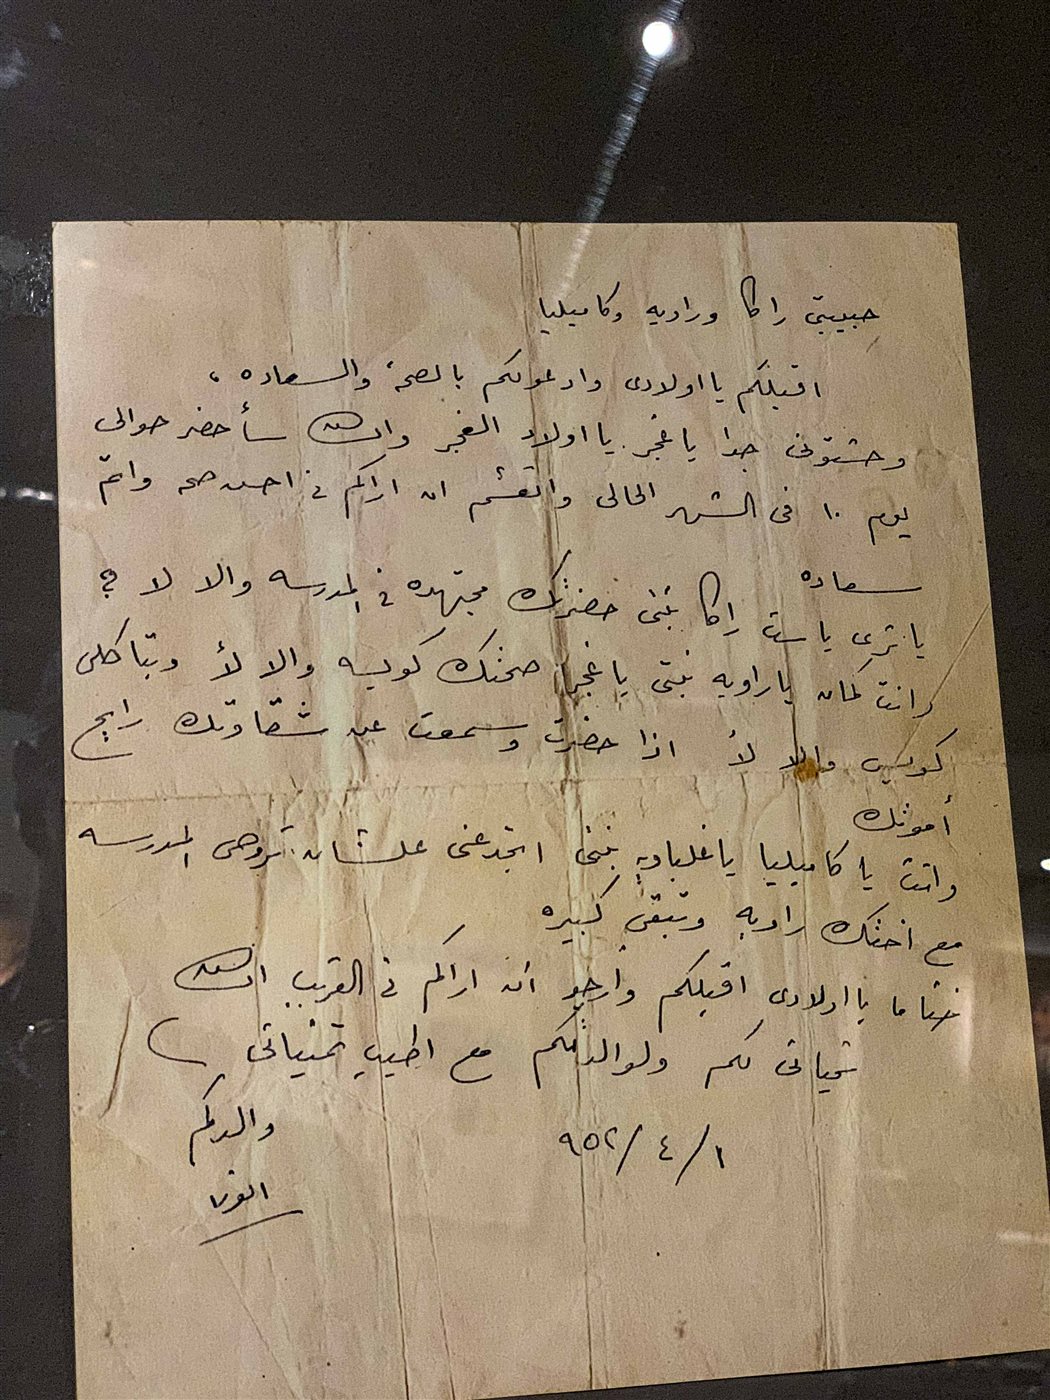 حبيبتى راكا وراويه وكاميليا
اقبلكم يا اولادى وادعولكم بالصحة والسعاده ،
وحشتونى جدا يا غجر يا اولاد الغجر وان شاء الله سأحضر حوالى
يوم ١٠ فى الشهر الحالى وا ان اراكم فى احسن صحه واتم
سعاده
يا ترى يا ست راكا بنتى حضرتك مجتهده فى المدرسه والا لا ؟
وانت كمان يا راويه بنتى يا غجر صحتك كويسه والا لأ وبتاكلى
كويس والا لأ اذا حضرت وسمعت عن شقاوتك رايح
أموتك
وانت يا كاميليا يا غلباويه بنتى اتجدعنى علشان تروحى المدرسه
مع اختك راويه وتبقى كبيره
ختاما يا اولادى اقبلكم وارجو ان اراكم فى القريب ان شاء الله
تحياتى لكم ولوالدتكم مع اطيب تمنياتى
والدكم
١/ ٤ /٩٥٢
انور